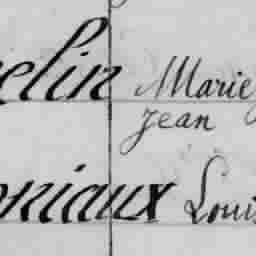 elin Marie
Jean
oriaux Louis